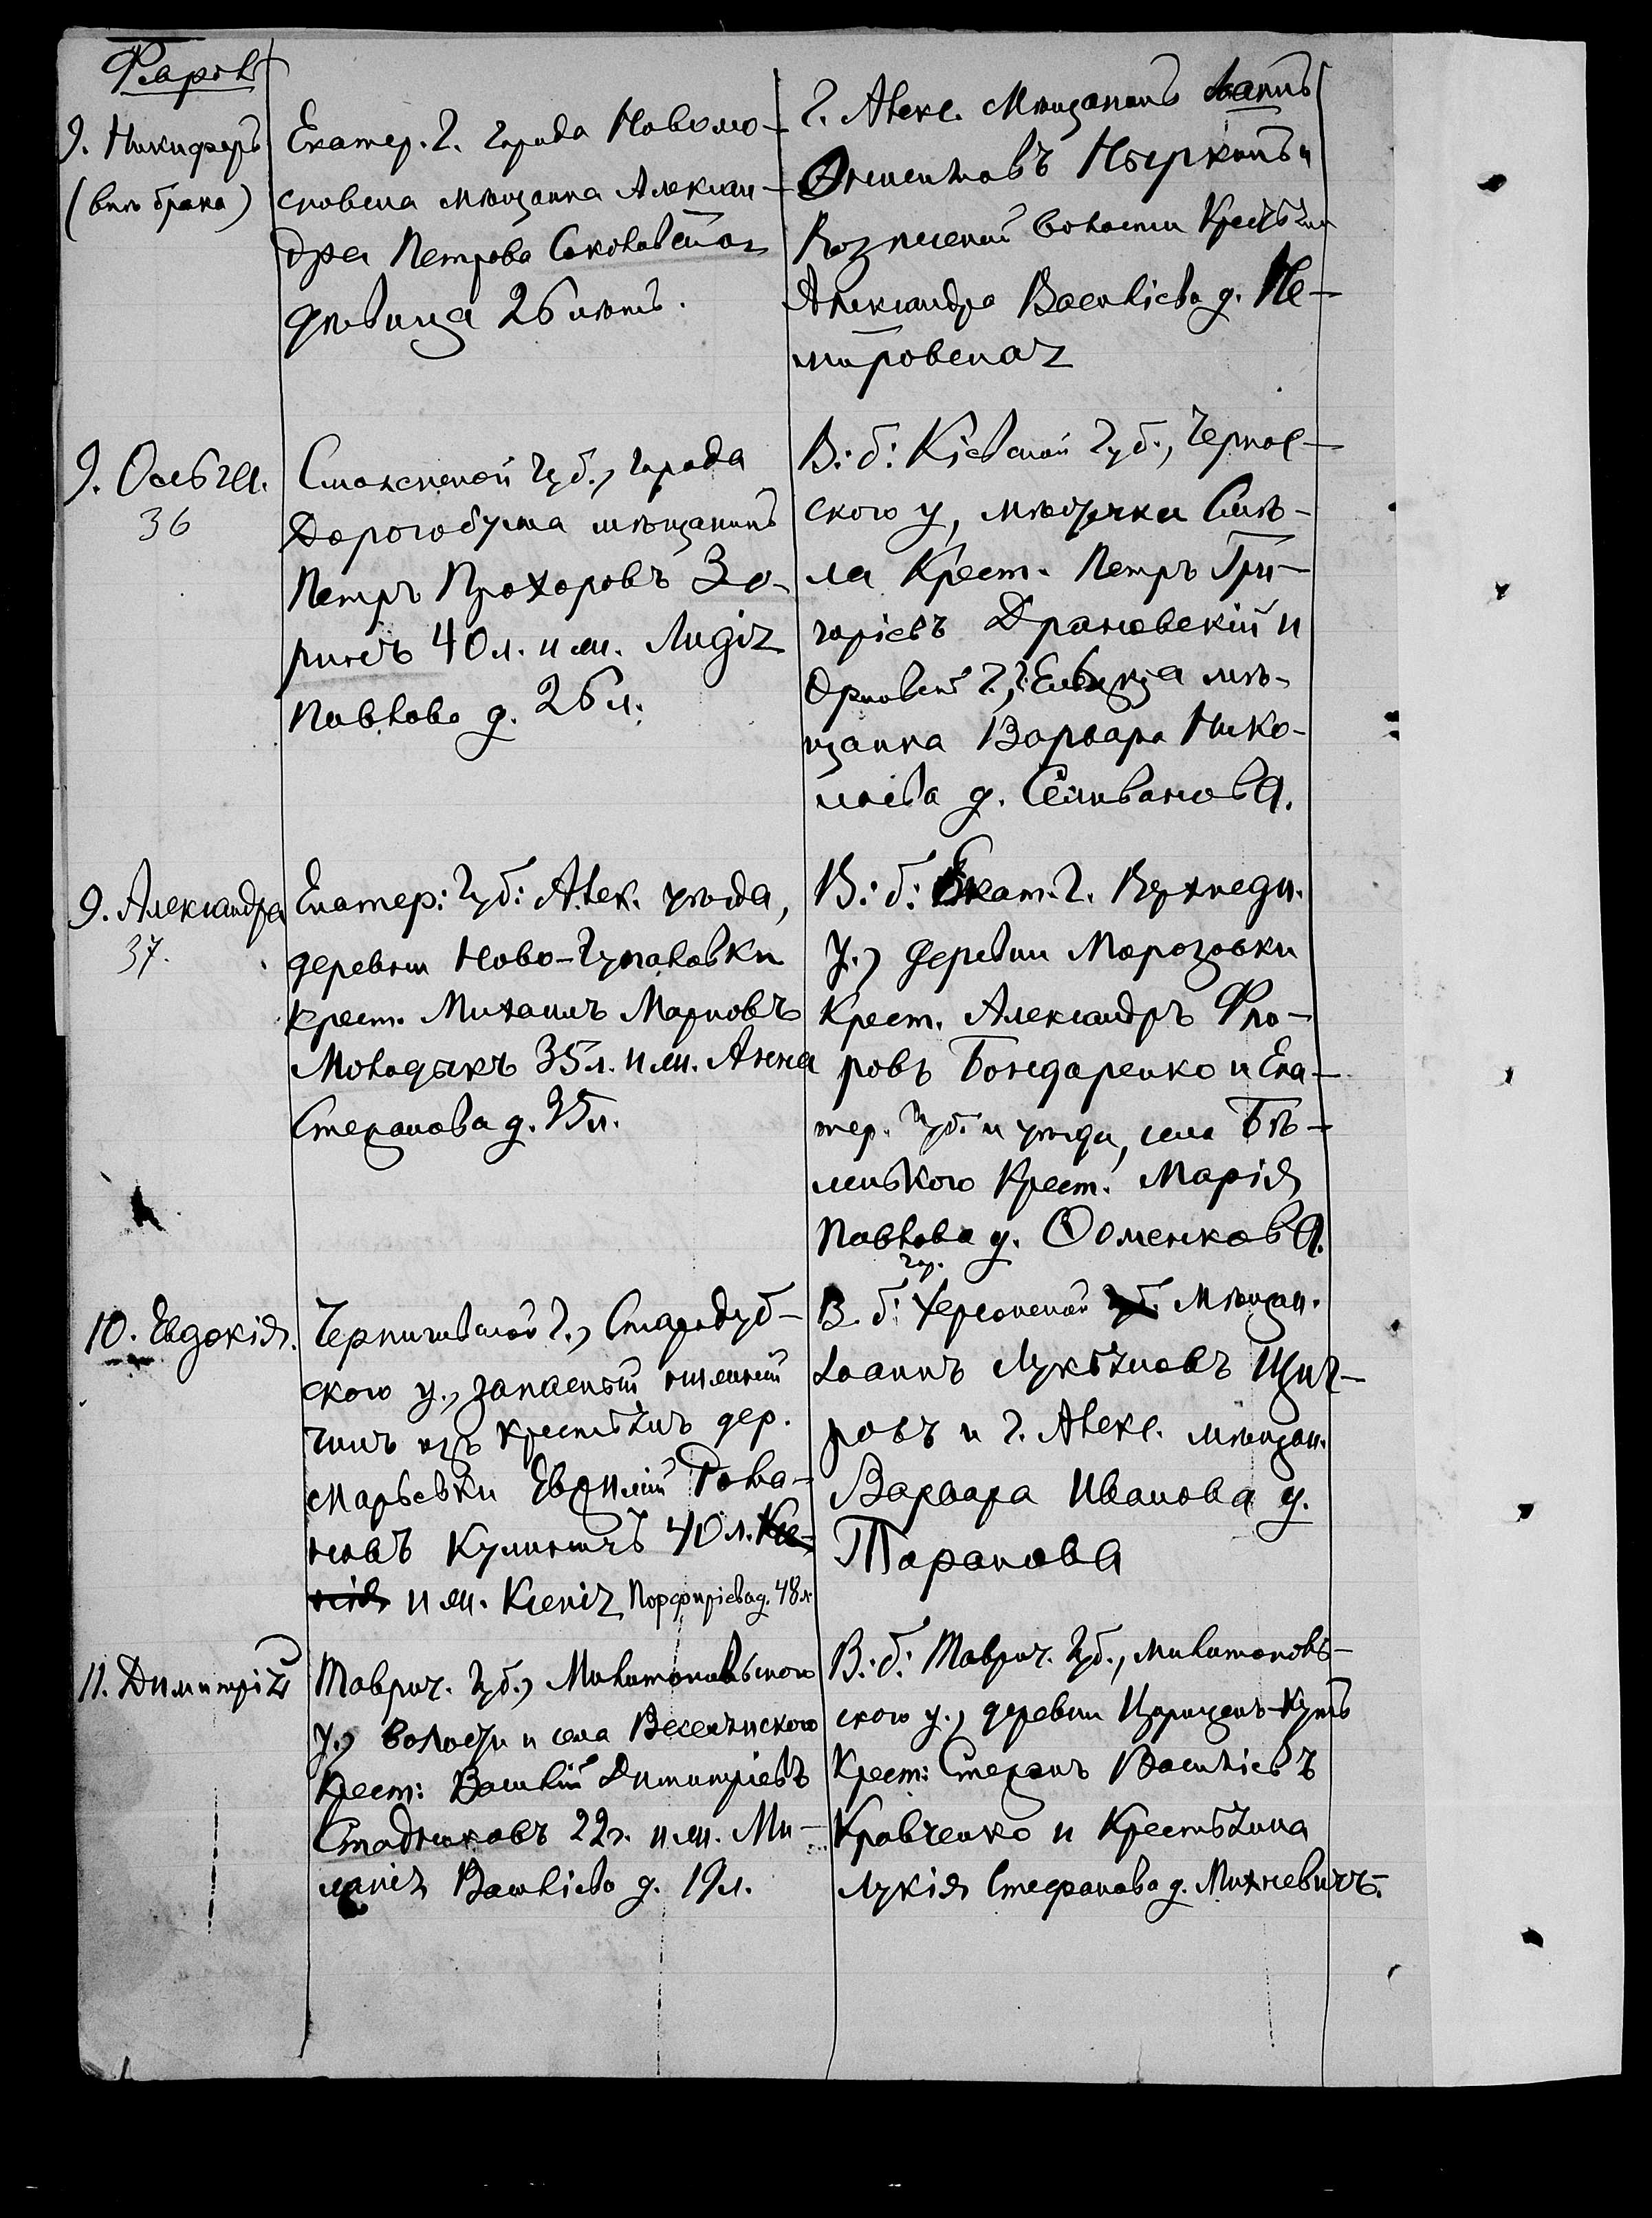 9. Никифоръ
(внѣ брака)
Екатер. г. города Новомо-
сковска мѣщанка Алексан-
дра Петрова
дѣвица 26 лѣтъ.
г. Алекс. Мѣщанинъ Іоаннъ
и
волости Крестьян
Александра Васильева д. Пе-
тровская
9. Ольга.
36
Смоленской губ., города
Дорогобужа мѣщанинъ
Петръ Прохоровъ Зо-
ринъ 40 л. и ж. Лидія
Павлова д. 26 л.
В: б: Кіевской губ., Черкас-
ского у, мѣстечка Смѣ-
ла Крест. Петръ Гри-
горіевъ и
Орловск г., г. Ельца мѣ-
щанка Варвара Нико-
лаева д. Селиванова.
9. Александра
37.
Екатер: губ: Алек. уѣзда,
деревни Ново-Гупаловки
крест. Михаилъ Марковъ
Молодыкъ 35 л. и ж. Анна
Стефанова д. 35 л.
В: б: Екат. г. Верхнедн.
у., деревни Морозовки
Крест. Александръ Фло-
ровъ Бондаренко и Ека-
тер. губ. и уѣзда, села Бѣ-
ленького Крест. Марія
Павлова д.
10. Евдокія.
Черниговской г., Стародуб-
ского у., запасный нижній
чинъ изъ крестьянъ дер.
Марьевки Евфимій Рома-
новъ 40 л. Ксе-
нія и ж. Ксенія Порфиріева д. 48 л.
гор.
В. б: Херсонской губ. Мѣщан.
Іоаннъ Лукьяновъ
ровъ и г. Алекс. мѣщан.
Варвара Иванова д.
Таранова
11. Димитрій
Таврич. губ., Мелитопольского
у., волости и села Веселянского
Крест: Василій Димитріевъ
Стадниковъ 22 г. и ж. Ме-
ланія Васильева д. 19 л.
В: б: Таврич. губ., Мелитополь-
ского у., деревни Царицынъ-Кутъ
Крест: Стефанъ Васильевъ
Кравченко и Крестьянка
Лукія Стефанова д. Михневичъ.